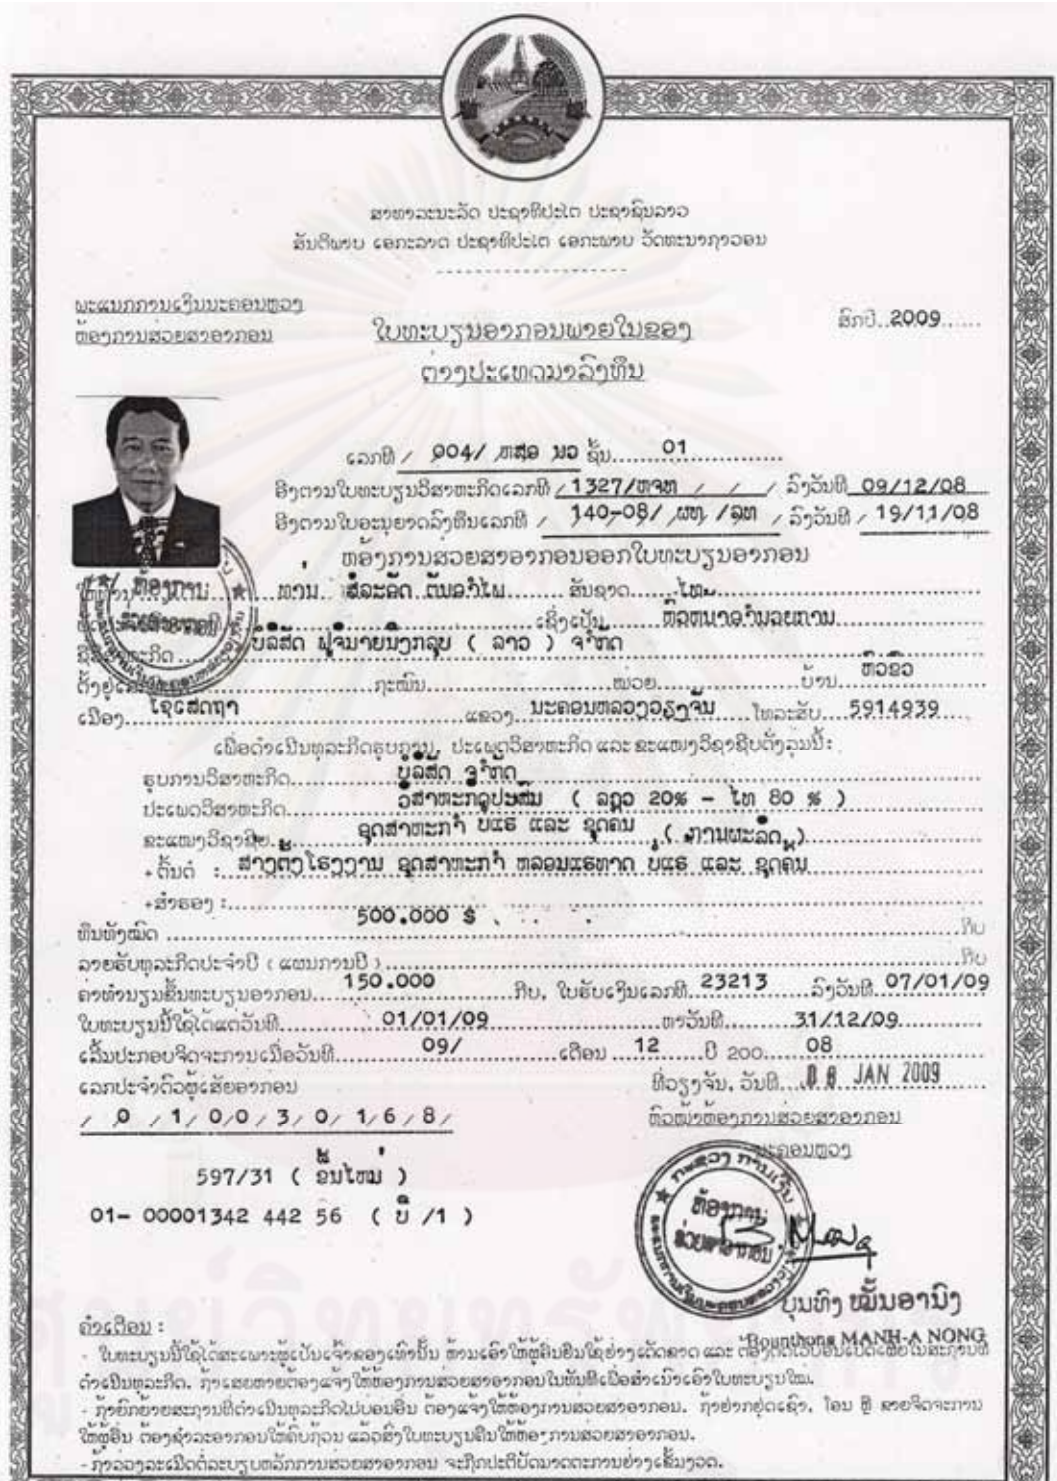 ສາທາລະນະລັດ ປະຊາທິປະໄຕ ປະຊາຊົນລາວ
ສັນຕິພາບ ເອກະລາດ ປະຊາທິປະໄຕ ເອກະພາບ ວັດທະນາຖາວອນ
ພະແນກການເງິນນະຄອນຫຼວງ
ຫ້ອງການສ່ວຍສາອາກອນ
ສົກປີ..2009......
ໃບທະບຽນອາກອນພາຍໃນຂອງ
ຕ່າງປະເທດມາລົງທຶນ
ເລກທີ / 004/ ຫສອ ນວ ຊັ້ນ......01
ອີງຕາມໃບທະບຽນວິສາຫະກິດເລກທີ / 1327/ຫຈທ / / / ລົງວັນທີ 09/12/08
ອີງຕາມໃບອະນຸຍາດລົງທຶນເລກທີ / 140-08/ ຜທ /ລທ / ລົງວັນທີ / 19/11/08
ຫ້ອງການສ່ວຍສາອາກອນອອກໃບທະບຽນອາກອນ
ທ່ານ ສັນຊາດ ໄທ
ເຊິ່ງເປັນ ຫົວຫນາອຳນວຍການ
ບໍລິສັດ ຟູຈິມາຍນິງກລຸບ ( ລາວ ) ຈຳກັດ
ຕັ້ງຢູ່ ຖະໜົນ ໜ່ວຍ ບ້ານ ຫົວຂົວ
ເມືອງ ໄຊເສດຖາ ແຂວງ ນະຄອນຫລວງວຽງຈັນ ໂທລະສັບ 5914939
ເພື່ອດຳເນີນທຸລະກິດຮູບການ, ປະເພດວິສາຫະກິດ ແລະ ຂະແໜງວິຊາຊີບດັ່ງລຸ່ມນີ້:
ຮູບການວິສາຫະກິດ ບໍລິສັດ ຈຳກັດ
ປະເພດວິສາຫະກິດ ວິສາຫະກິດປະສົມ ( ລາວ 20% - ໄທ 80 % )
ຂະແໜງວິຊາຊີບ ອຸດສາຫະກຳ ບໍ່ແຮ່ ແລະ ຂຸດຄົ້ນ ( ການຜະລິດ )
+ ຕົ້ນຕໍ : ສ້າງຕັ້ງໂຮງງານ ອຸດສາຫະກຳ ຫລອມແຮ່ທາດ ບໍ່ແຮ່ ແລະ ຂຸດຄົ້ນ
+ສຳຮອງ :
ທຶນທັງໝົດ 500.000 $ ກີບ
ລາຍຮັບທຸລະກິດປະຈຳປີ ( ແຜນການປີ ) ກີບ
ຄ່າທຳນຽມຂຶ້ນທະບຽນອາກອນ 150.000 ກີບ, ໃບຮັບເງິນເລກທີ 23213 ລົງວັນທີ 07/01/09
ໃບທະບຽນນີ້ໃຊ້ໄດ້ແຕ່ວັນທີ 01/01/09 ຫາວັນທີ 31/12/09
ເລີ້ມປະກອບຈິດຈະການເມື່ອວັນທີ 09/ ເດືອນ 12 ປີ 200 08
ເລກປະຈຳຕົວຜູ້ເສັຍອາກອນ
ທີ່ວຽງຈັນ, ວັນທີ 06 JAN 2009
/ 0 / 1/ 0/0 / 3/ 0/ 1/6 / 8/
ຫົວໜ້າຫ້ອງການສ່ວຍສາອາກອນ
ນະຄອນຫຼວງ
597/31 ( ຂຶ້ນໃຫມ່ )
01- 00001342 442 56 ( ບີ /1 )
ບຸນທົງ ໝັ້ນອານົງ
Bounthong MANH-A NONG
ຄຳເຕືອນ :
- ໃບທະບຽນນີ້ໃຊ້ໄດ້ສະເພາະຜູ້ເປັນເຈົ້າຂອງເທົ່ານັ້ນ ຫ້າມເອົາໃຫ້ຜູ້ອື່ນຢືມໃຊ້ຢ່າງເດັດຂາດ ແລະ
ດຳເນີນທຸລະກິດ. ຖ້າເສຍຫາຍຕ້ອງແຈ້ງໃຫ້ຫ້ອງການສ່ວຍສາອາກອນໃນທັນທີເພື່ອສຳເນົາເອົາໃບທະບຽນໃໝ່.
- ຖ້າຍົກຍ້າຍສະຖານທີ່ດຳເນີນທຸລະກິດໄປບ່ອນອື່ນ ຕ້ອງແຈ້ງໃຫ້ຫ້ອງການສ່ວຍສາອາກອນ. ຖ້າຢາກຢຸດເຊົາ, ໂອນ ຫຼື ຂາຍຈິດຈະການ
ໃຫ້ຜູ້ອື່ນ ຕ້ອງຊຳລະອາກອນໃຫ້ຄົບຖ້ວນ ແລ້ວສົ່ງໃບທະບຽນຄືນໃຫ້ຫ້ອງການສ່ວຍສາອາກອນ.
- ຖ້າລ່ວງລະເມີດຕໍ່ລະບຽບຫລັກການສ່ວຍສາອາກອນ ຈະຖືກປະຕິບັດມາດຕະການຢ່າງເຂັ້ມງວດ.